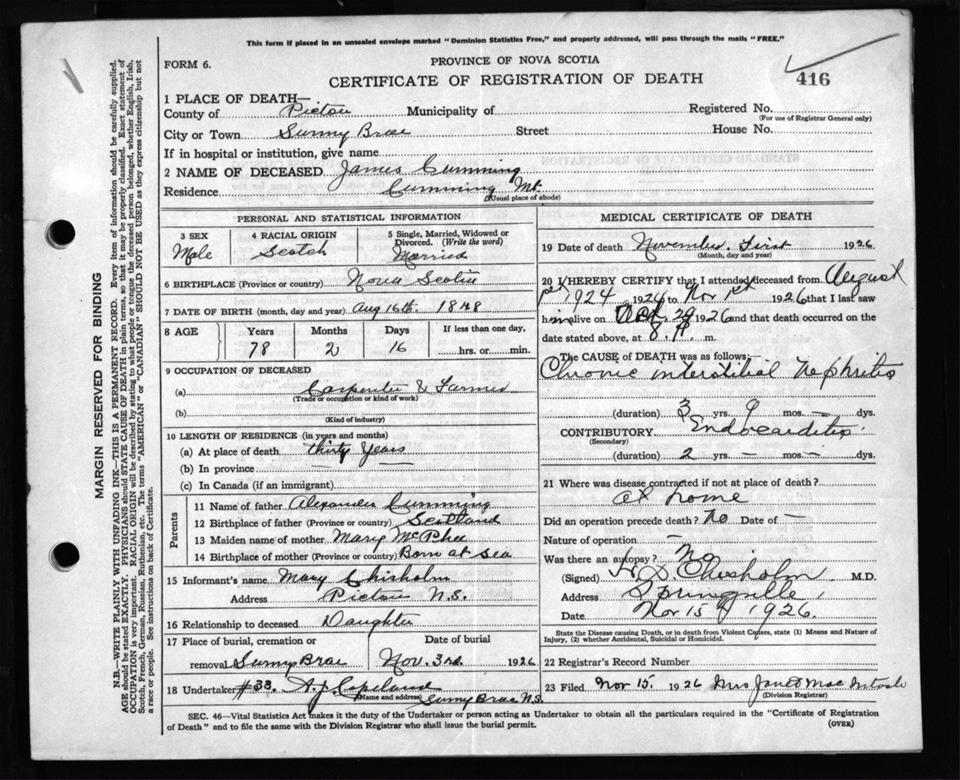 This form if placed in an unsealed envelope marked "Dominion Statistics Free," and properly addressed, will pass through the mails "FREE."
FORM 6.
PROVINCE OF NOVA SCOTIA
CERTIFICATE OF REGISTRATION OF DEATH
416
1 PLACE OF DEATH—
County of Pictou Municipality of Registered No.
(For use of Registrar General only)
City or Town Sunny Brae Street House No.
If in hospital or institution, give name
2 NAME OF DECEASED James Cumming
Residence Cumming Mt.
(Usual place of abode)
PERSONAL AND STATISTICAL INFORMATION
3 SEX 4 RACIAL ORIGIN 5 Single, Married, Widowed or
Divorced. (Write the word)
Male Scotch Married
6 BIRTHPLACE (Province or country) Nova Scotia
7 DATE OF BIRTH (month, day and year) Aug 16th. 1848
8 AGE Years Months Days If less than one day,
78 2 16 hrs. or min.
9 OCCUPATION OF DECEASED
(a) Carpenter & Farmer
(Trade or occupation or kind of work)
(b)
(Kind of industry)
10 LENGTH OF RESIDENCE (in years and months)
(a) At place of death thirty years
(b) In province — —
(c) In Canada (if an immigrant)
Parents
11 Name of father Alexander Cumming
12 Birthplace of father (Province or country) Scotland
13 Maiden name of mother Mary McPhee
14 Birthplace of mother (Province or country) Born at sea
15 Informant's name Mary Chisholm
Address Pictou N.S.
16 Relationship to deceased Daughter
17 Place of burial, cremation or Date of burial
removal Sunny Brae Nov. 3rd. 1926
18 Undertaker #33. A.J. Copeland
(Name and address)
Sunny Brae N.S.
MEDICAL CERTIFICATE OF DEATH
19 Date of death November First 1926
(Month, day and year)
20 I HEREBY CERTIFY that I attended deceased from August
1924 1926 to Nov 1st 1926 that I last saw
him alive on Oct 29 1926 and that death occurred on the
date stated above, at m.
The CAUSE OF DEATH was as follows:
Chronic interstitial Nephritis
(duration) 3 yrs. 9 mos. — dys.
CONTRIBUTORY Endocarditis.
(Secondary)
(duration) 2 yrs. — mos. — dys.
21 Where was disease contracted if not at place of death?
at home
Did an operation precede death? No Date of —
Nature of operation —
Was there an autopsy? No
(Signed) Chisholm M.D.
Address Springville,
Date Nov 15 1926.
State the Disease causing Death, or in death from Violent Causes, state (1) Means and Nature of
Injury, (2) whether Accidental, Suicidal or Homicidal.
22 Registrar's Record Number
23 Filed Nov 15 1926 Mrs Janet MacIntosh
(Division Registrar)
SEC. 46—Vital Statistics Act makes it the duty of the Undertaker or person acting as Undertaker to obtain all the particulars required in the "Certificate of Registration
of Death" and to file the same with the Division Registrar who shall issue the burial permit. (OVER)
MARGIN RESERVED FOR BINDING
N.B.—WRITE PLAINLY WITH UNFADING INK—THIS IS A PERMANENT RECORD. Every item of information should be carefully supplied.
AGE should be stated EXACTLY. PHYSICIANS should STATE CAUSE OF DEATH in plain terms, so that it may be properly classified. Exact statement of
OCCUPATION is very important. RACIAL ORIGIN will be described by stating to what people or tongue the deceased person belonged, whether English, Irish,
Scotch, French, German, Russian, Ruthenian, etc. The terms "AMERICAN" or "CANADIAN" SHOULD NOT BE USED as they express citizenship but not
a race or people. See instructions on back of Certificate.